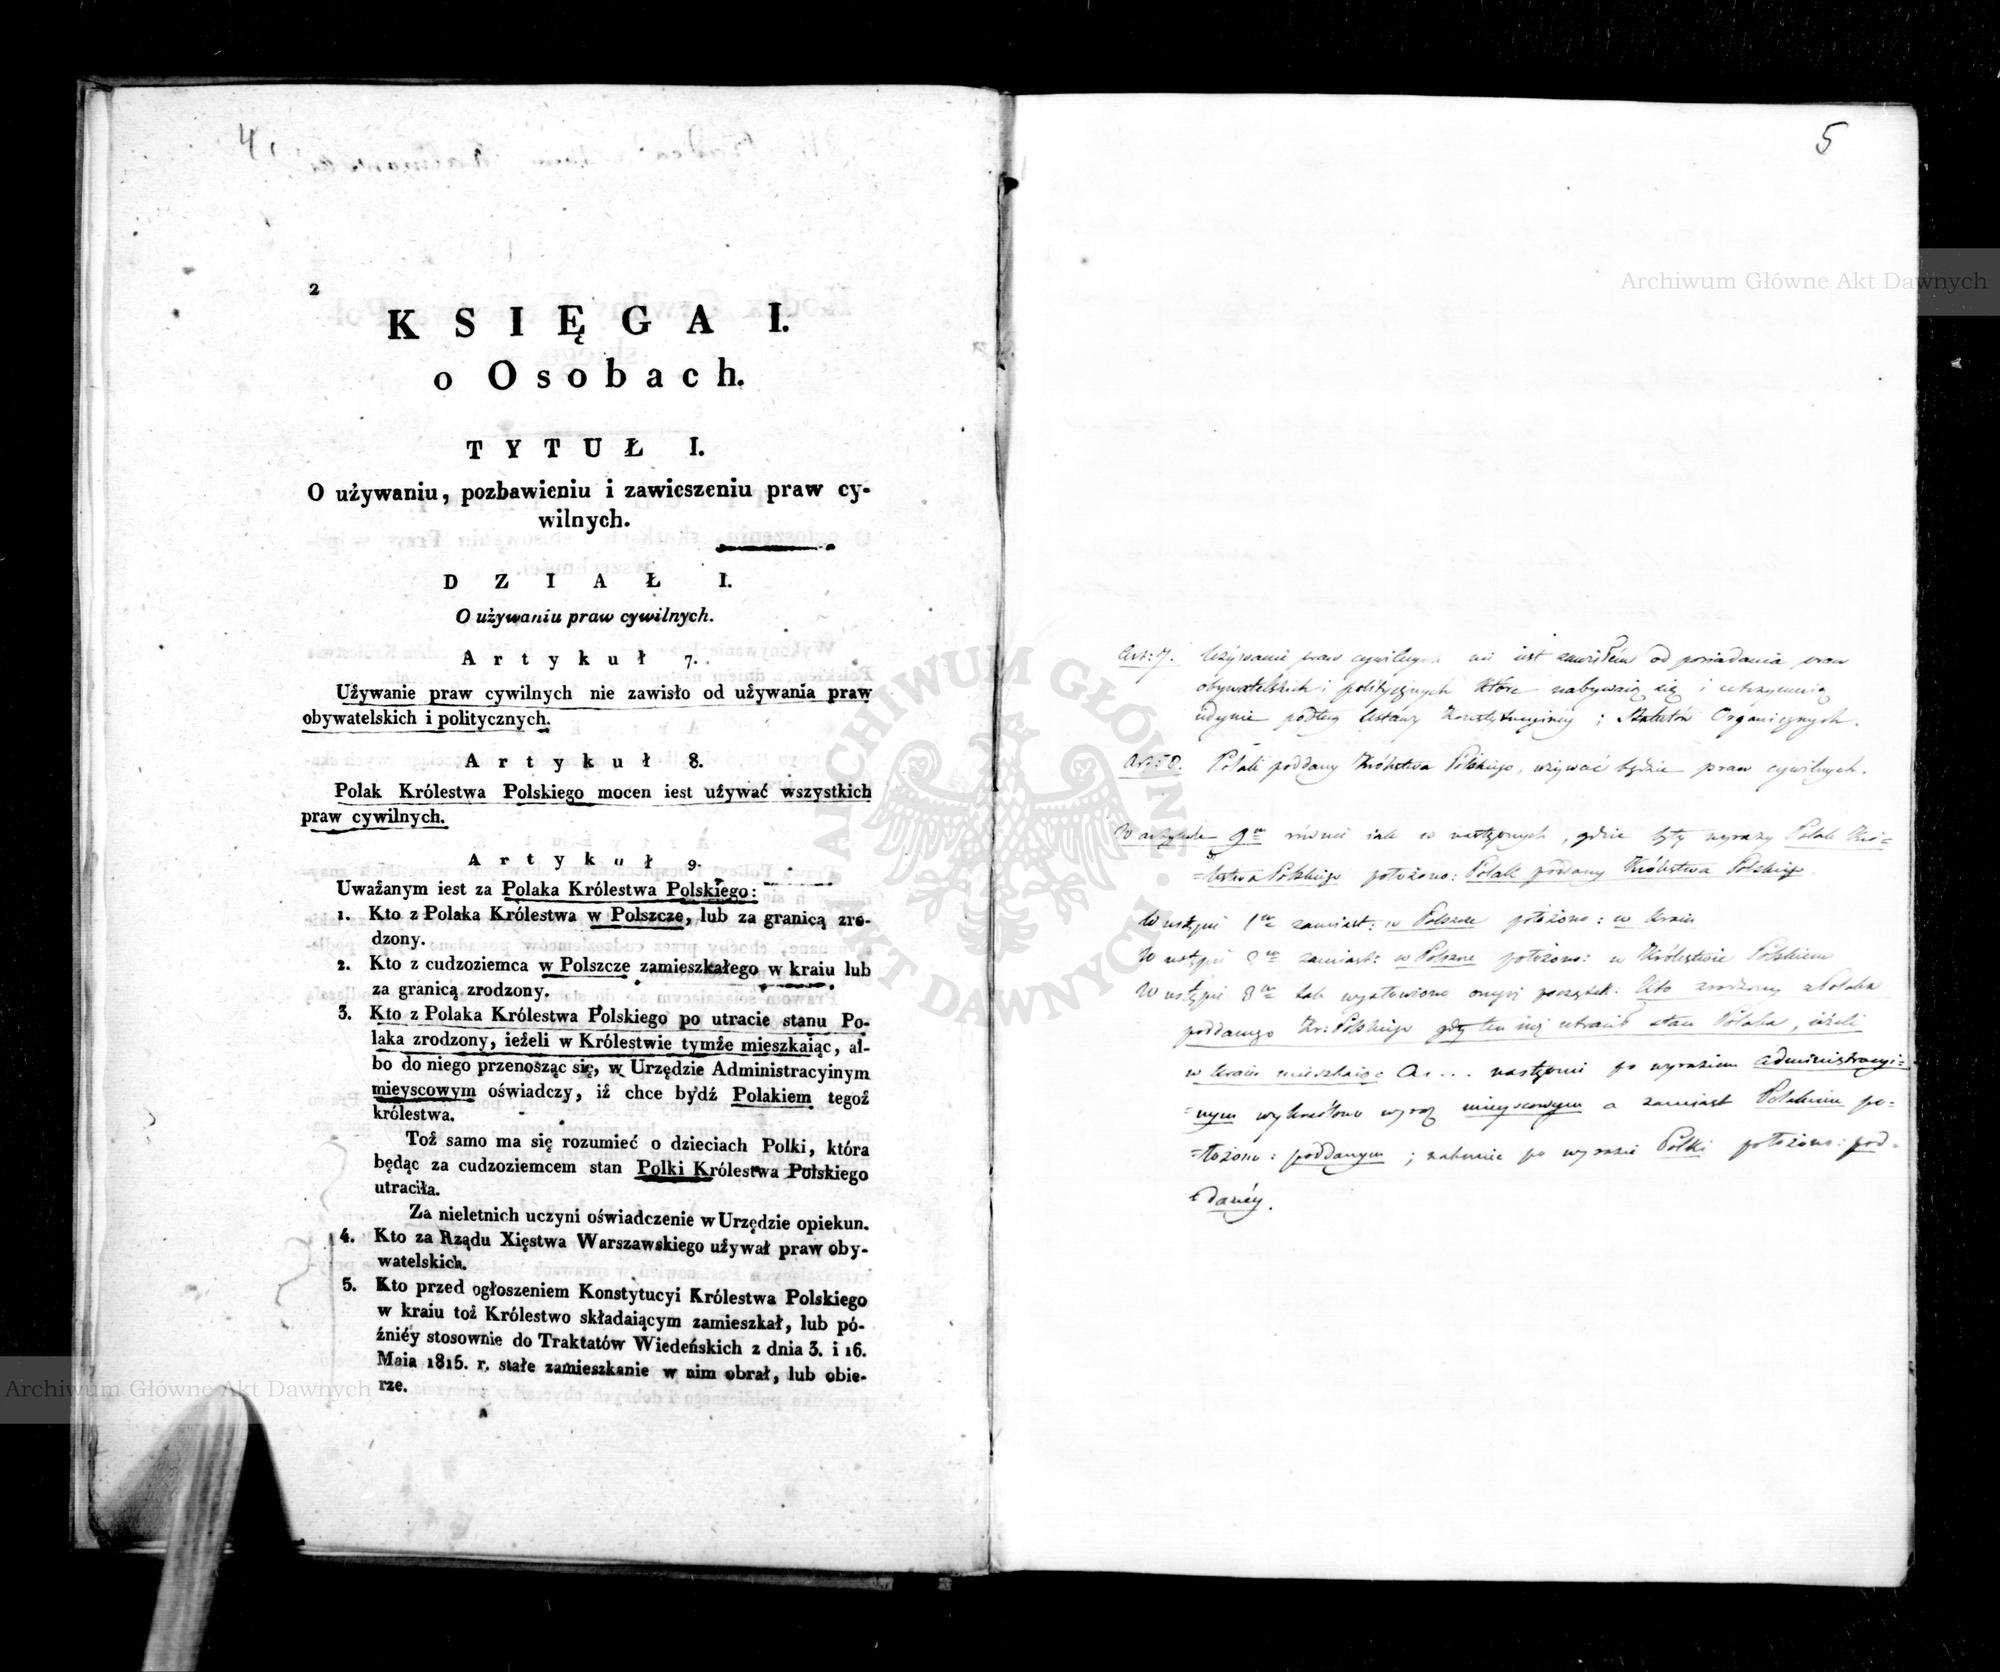 4
2
KSIĘGA I.
o Osobach.
TYTUŁ I.
O używaniu, pozbawieniu i zawieszeniu praw cy-
wilnych.
DZIAŁ I.
O używaniu praw cywilnych.
Artykuł 7.
Używanie praw cywilnych nie zawisło od używania praw
obywatelskich i politycznych.
Artykuł 8.
Polak Królestwa Polskiego mocen iest używać wszystkich
praw cywilnych.
Artykuł 9.
Uważanym iest za Polaka Królestwa Polskiego:
1. Kto z Polaka Królestwa w Polszcze, lub za granicą zro-
dzony.
2. Kto z cudzoziemca w Polszcze zamieszkałego w kraiu lub
za granicą zrodzony.
3. Kto z Polaka Królestwa Polskiego po utracie stanu Po-
laka zrodzony, ieżeli w Królestwie tymże mieszkaiąc, al-
bo do niego przenosząc się, w Urzędzie Administracyinym
mieyscowym oświadczy, iż chce bydź Polakiem tegoż
królestwa.
Toż samo ma się rozumieć o dzieciach Polki, która
będąc za cudzoziemcem stan Polki Królestwa Polskiego
utraciła.
Za nieletnich uczyni oświadczenie w Urzędzie opiekun.
4. Kto za Rządu Xięstwa Warszawskiego używał praw oby-
watelskich.
5. Kto przed ogłoszeniem Konstytucyi Królestwa Polskiego
w kraiu toż Królestwo składaiącym zamieszkał, lub pó-
źniéy stosownie do Traktatów Wiedeńskich z dnia 3. i 16.
Maia 1815. r. stałe zamieszkanie w nim obrał, lub obie-
rze.
5
Art: 7. Używanie praw cywilnych nie iest zawisłém od posiadania praw
obywatelskich i politycznych które nabywaią się i utrzymuią
iedynie podług Ustawy Konstytucyinéy i Statutów Organicznych.
Art: 8. Polak poddany Królestwa Polskiego, używać będzie praw cywilnych.
W artykule 9m równie iak w następnych, gdzie były wyrazy Polak Kró=
=lestwa Polskiego położono: Polak poddany Królestwa Polskiego.
W ustępie 1m zamiast: w Polszcze położono: w kraiu
W ustępie 2m zamiast: w Polszcze położono: w Królestwie Polskiem
W ustępie 3m tak wysłowiono początek: Kto zrodzony z Polaka
poddanego Kr: Polskiego gdy ten iuż utracił stan Polaka, ieżeli
w kraiu mieszkaiąc &c... następnie po wyrazie administracyi=
=nym wykreślono wyraz mieyscowym a zamiast Polakiem po=
=łożono: poddanym; nakoniec po wyrazie Polki położono: pod=
=danéy.
Archiwum Główne Akt Dawnych
ARCHIWUM GŁÓWNE AKT DAWNYCH
Archiwum Główne Akt Dawnych